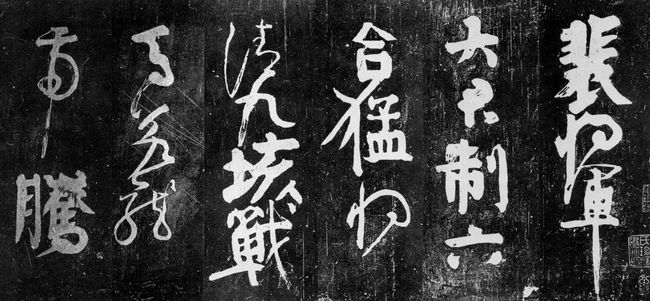 裴將軍
大君制六
合猛將
清九垓戰
馬若龍
虎騰